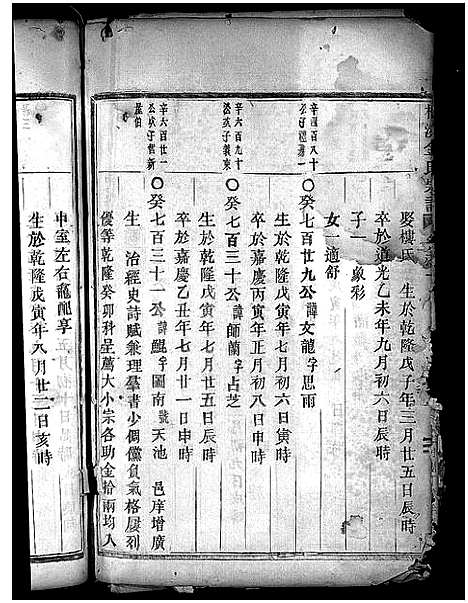 娶樓氏　生於乾隆戊子年三月廿五日辰時
卒於道光乙未年九月初六日辰時
子一　象彩
女一　適舒
辛四百八十
〇癸七百廿九公諱文龍字思雨
生於乾隆戊寅年七月初六日寅時
卒於嘉慶丙寅年正月初八日申時
辛六百九十
公次子義東
〇癸七百三十公諱師蘭字占芝
生於乾隆戊寅年七月廿五日辰時
卒於嘉慶乙丑年七月廿一日申時
辛六百廿一
〇癸七百三十一公諱鯤字圖南號天池　邑庠增廣
生　治經史詩賦兼理羣書少倜儻負氣格屢列
優等乾隆癸卯科呈薦大小宗各助金拾兩均入
中室左右龕配享
生於乾隆戊寅年八月廿二日亥時